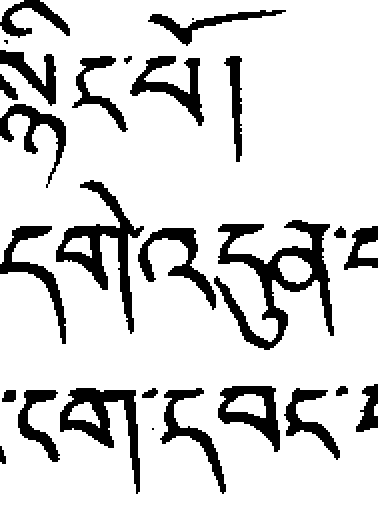 སྙིང་པོ།
དགེ་འདུན་
ངག་དབང་